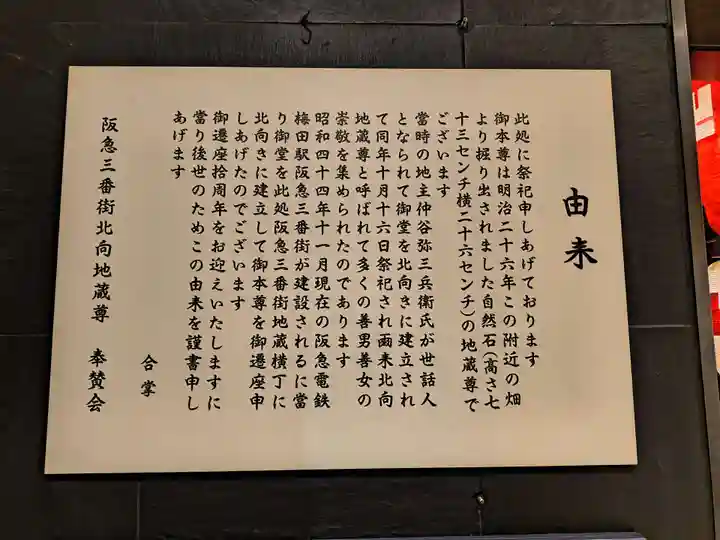 由来
此処に祭祀申しあげております
御本尊は明治二十六年この附近の畑
より掘り出されました自然石(高さ七
十三センチ横二十六センチ)の地蔵尊で
ございます
當時の地主仲谷弥三兵衛氏が世話人
となられて御堂を北向きに建立され
て同年十月十六日祭祀され爾来北向
地蔵尊と呼ばれて多くの善男善女の
崇敬を集められたのであります
昭和四十四年十一月現在の阪急電鉄
梅田駅阪急三番街が建設されるに當
り御堂を此処阪急三番街地蔵横丁に
北向きに建立して御本尊を御遷座申
しあげたのでございます
御遷座拾周年をお迎えいたしますに
當り後世のためこの由来を謹書申し
あげます
合掌
阪急三番街北向地蔵尊 奉賛会